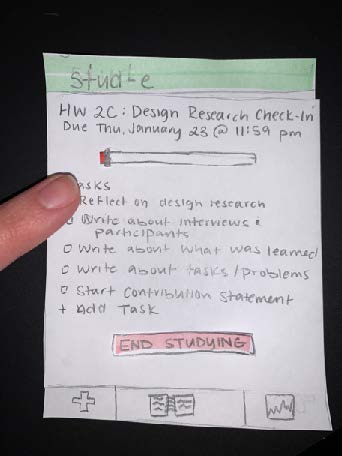 stud-e
HW 2C: Design Research Check-In
Due Thu, January 23 @ 11:59 pm
asks
Reflect on design research
Write about interviews &
participants
Write about what was learned
Write about tasks/problems
Start Contribution Statement
+ Add Task
END STUDYING